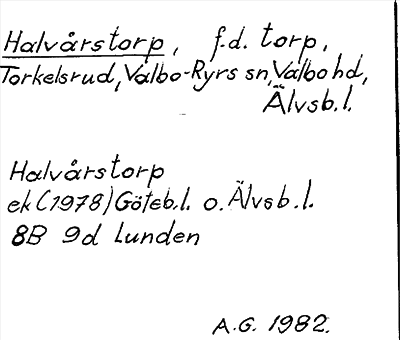 Halvårstorp, f.d. torp,
Torkelsrud, Valbo-Ryrs sn, Valbo hd,
Älvsb.l.
Halvårstorp
ek (1978) Göteb.l. o. Älvsb.l.
8B 9d Lunden
A.G. 1982.